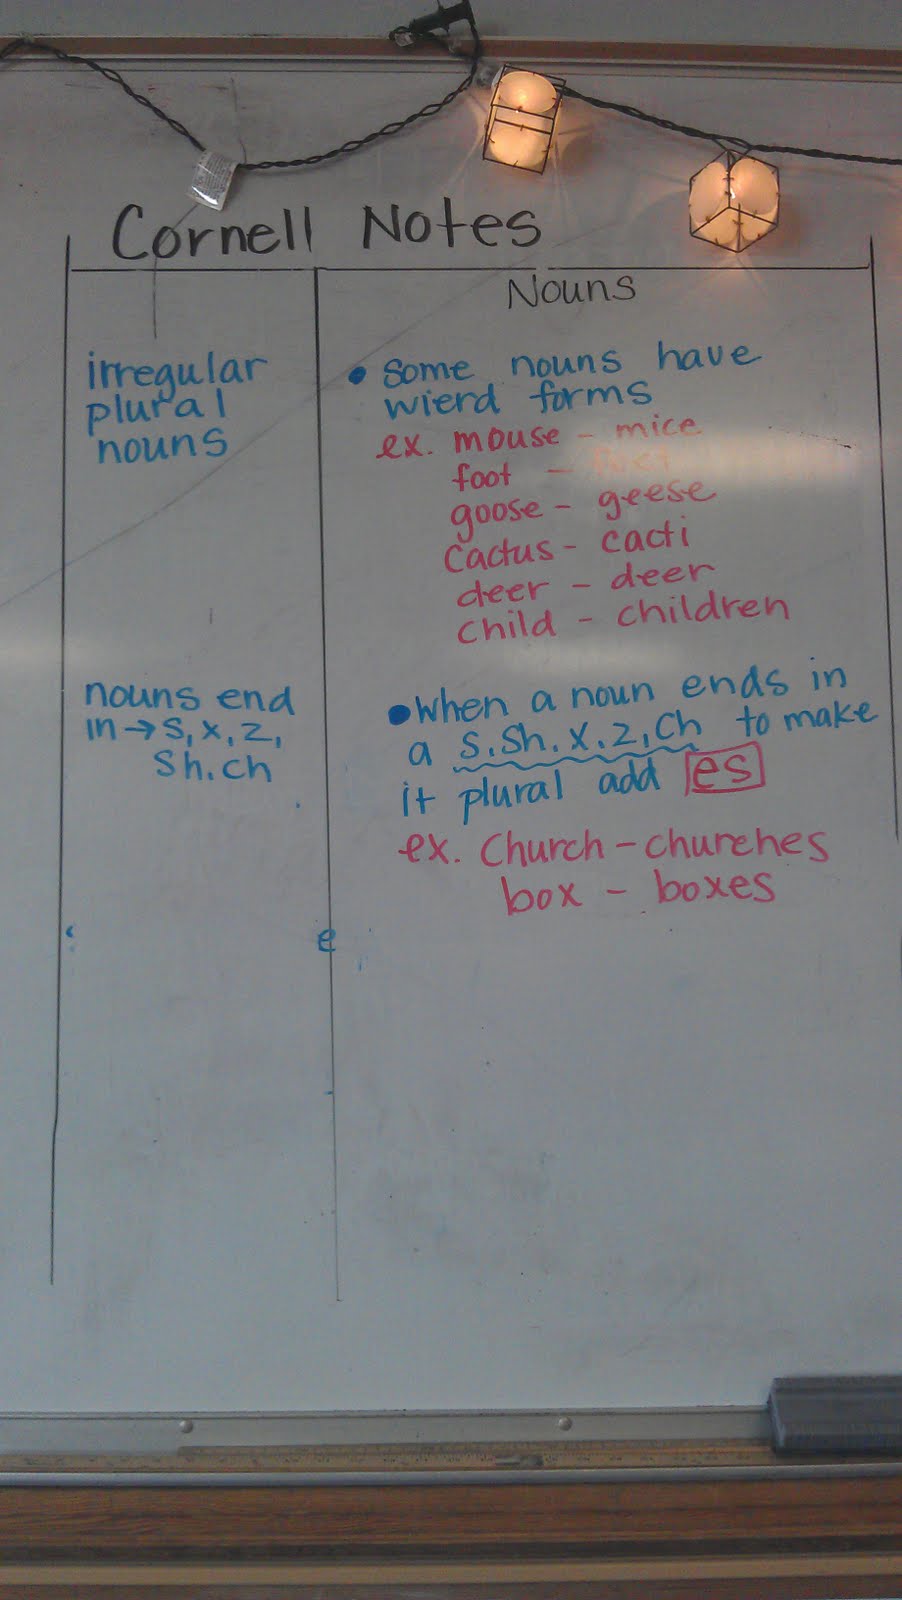 Cornell Notes
Nouns
irregular
plural
nouns
• Some nouns have
wierd forms
ex. mouse - mice
foot - feet
goose - geese
cactus - cacti
deer - deer
child - children
nouns end
in → s, x, z,
sh. ch
• When a noun ends in
a s. sh. x. z, ch to make
it plural add es
ex. Church - churches
box - boxes
e